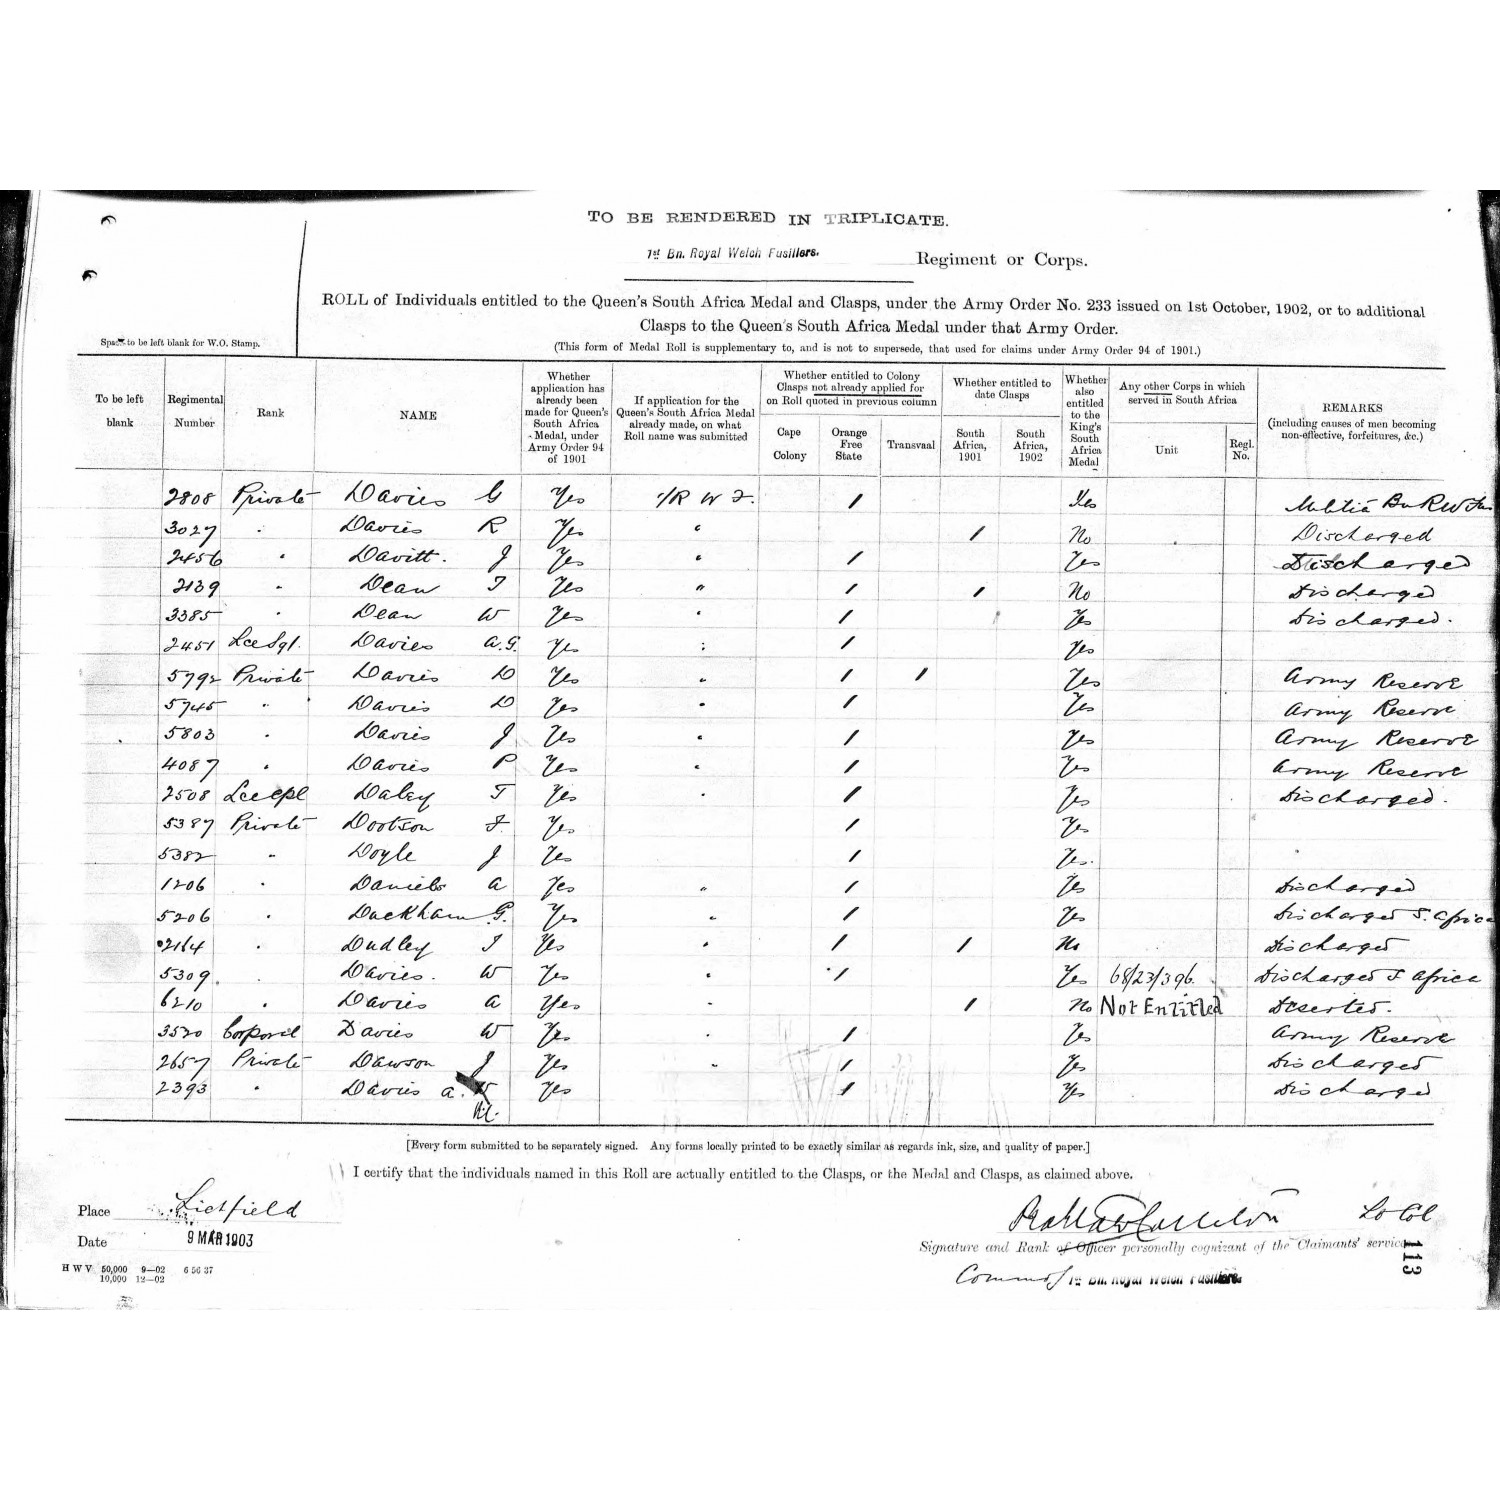 TO BE RENDERED IN TRIPLICATE.
1st Bn. Royal Welch Fusiliers. Regiment or Corps.
ROLL of Individuals entitled to the Queen's South Africa Medal and Clasps, under the Army Order No. 233 issued on 1st October, 1902, or to additional
Clasps to the Queen's South Africa Medal under that Army Order.
Space to be left blank for W.O. Stamp.
(This form of Medal Roll is supplementary to, and is not to supersede, that used for claims under Army Order 94 of 1901.)
To be left blank
Regimental Number
Rank
NAME
Whether application has already been made for Queen's South Africa Medal, under Army Order 94 of 1901
If application for the Queen's South Africa Medal already made, on what Roll name was submitted
Whether entitled to Colony Clasps not already applied for on Roll quoted in previous column
Cape Colony
Orange Free State
Transvaal
Whether entitled to date Clasps
South Africa, 1901
South Africa, 1902
Whether also entitled to the King's South Africa Medal
Any other Corps in which served in South Africa
Unit
Regl. No.
REMARKS
(including causes of men becoming non-effective, forfeitures, &c.)
2808 Private Davies G Yes 1/R W F. / Yes Militia Bn R W Fus
3027 " Davies R Yes " / No Discharged
2456 " Davitt. J Yes " / Yes Discharged
2139 " Dean T Yes " / / No Discharged
3385 " Dean W Yes " / Yes Discharged.
2451 Lce Sgt. Davies A.G. Yes " / Yes
5792 Private Davies D Yes " / / Yes Army Reserve
5745 " Davies D Yes " / Yes Army Reserve
5803 " Davies J Yes " / Yes Army Reserve
4087 " Davies P Yes " / Yes Army Reserve
2508 Lce Cpl Daley T Yes " / Yes Discharged.
5387 Private Dootson F. Yes / Yes
5382 " Doyle J Yes / Yes.
1206 " Daniels A Yes " / Yes Discharged
5206 " Duckham G. Yes " / Yes Discharged S. Africa
2164 " Dudley J Yes " / / No Discharged
5309. " Davies. W Yes " / Yes 68/23/396. Discharged S Africa
6210 " Davies A Yes " / No Not Entitled Deserted.
3520 Corporal Davies W Yes " / Yes Army Reserve
2657 Private Dawson J Yes " / Yes Discharged
2393 " Davies A. Yes / Yes Discharged
[Every form submitted to be separately signed. Any forms locally printed to be exactly similar as regards ink, size, and quality of paper.]
I certify that the individuals named in this Roll are actually entitled to the Clasps, or the Medal and Clasps, as claimed above.
Place Lichfield
Lt Col
Date 9 MAR 1903
Signature and Rank of Officer personally cognizant of the Claimants' service
113
H W V 50,000 9—02 6 56 37
10,000 12—02
Commdg 1st Bn. Royal Welch Fusiliers.